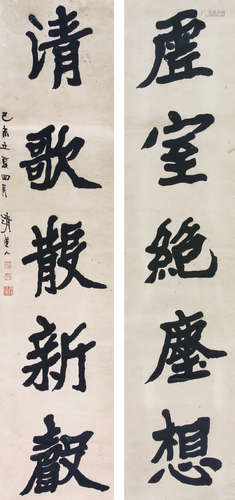 虛室絕塵想
清歌散新聲
己亥立夏四月
清道人